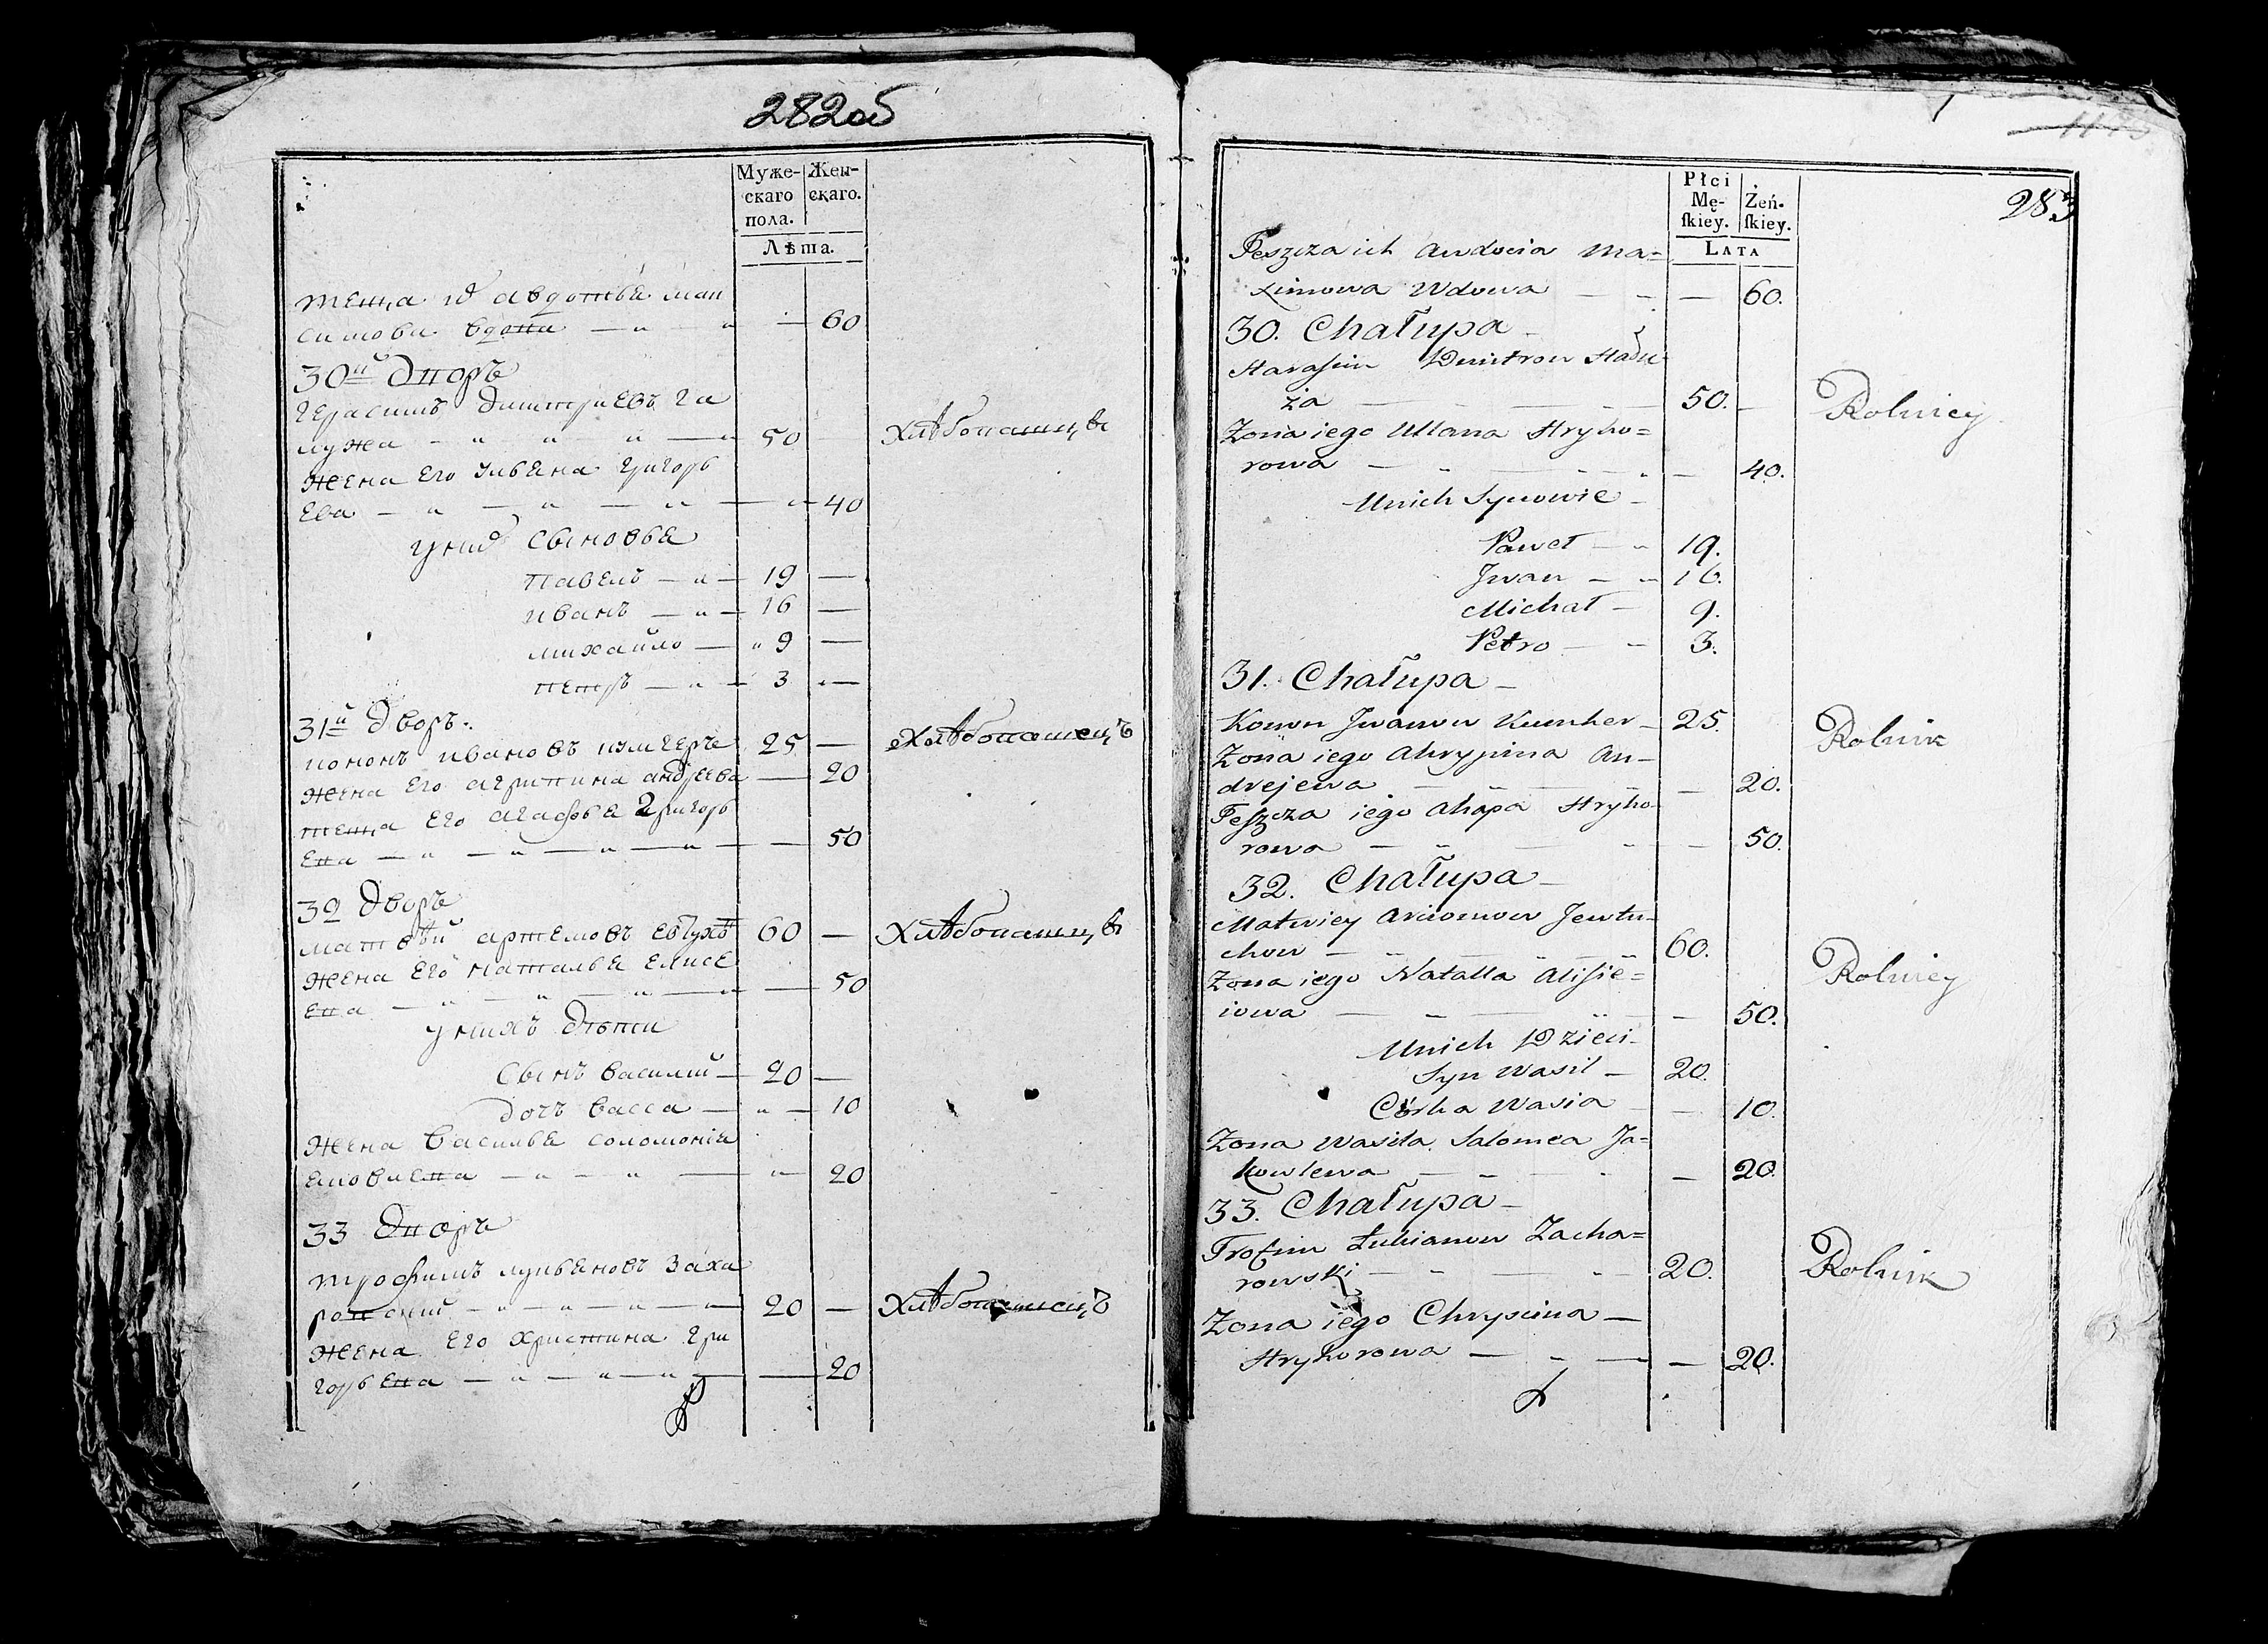 282об
Муже- Жен-
скаго скаго.
пола.
Лѣта.
теща ихъ авдотья мак
симова вдова — 60
30й дворъ
герасимъ дмитриевъ га
лужа 50 хлѣбопашцы
жена его ульяна григорь
ева 40
у них сыновья
павелъ 19 —
иванъ 16 —
михайло 9 —
петръ 3 —
31й дворъ.
кононъ ивановъ кумгеръ 25 — хлѣбопашецъ
жена его агрипина андреева — 20
теща его агафья григорь
ева — 50
32 дворъ
матвѣй артемовъ евтухо 60 — хлѣбопашцы
жена его наталья елисе
ева — 50
у нихъ дѣти
сынъ василий 20 —
дочь васса — 10
жена василья соломония
яковлева 20
33 дворъ
трофимъ лукьяновъ заха
ровский 20 — хлѣбопашецъ
жена его христина гри
горьева — 20
283
Płci
Mę- Żeń-
ſkiey. ſkiey.
LATA
Teszcza ich Andocia Ma=
ximowa Wdowa — 60.
30. Chałupa
Harasim Dmitrow Hału
ża 50. — Rolnicy
Zona iego Ullana Hryho=
rowa — 40.
Unich Synowie
Paweł 19.
Jwan 16.
Michał 9.
Petro 3.
31. Chałupa
Konon Jwanow Kumher 25. Rolnik
Zona iego Ahrypina An-
drejewa — 20.
Teszcza iego Ahapa Hryho
rowa — 50.
32. Chałupa
Matwiey Arciomow Jewtu-
chow 60.
Zona iego Natalla Alisie= Rolnicy
iowa — 50.
Unich Dzieci
Syn Wasil 20.
Córka Wasia — 10.
Zona Wasila Salomea Ja=
kowlewa — 20.
33. Chałupa
Trofim Łukianow Zacha=
rowski 20. Rolnik
Zona iego Chrycina
Hryhorowa — 20.